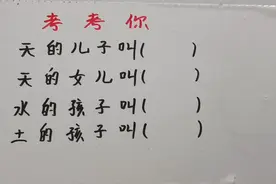 考考你
天的儿子叫( )
天的女儿叫( )
水的孩子叫( )
土的孩子叫( )